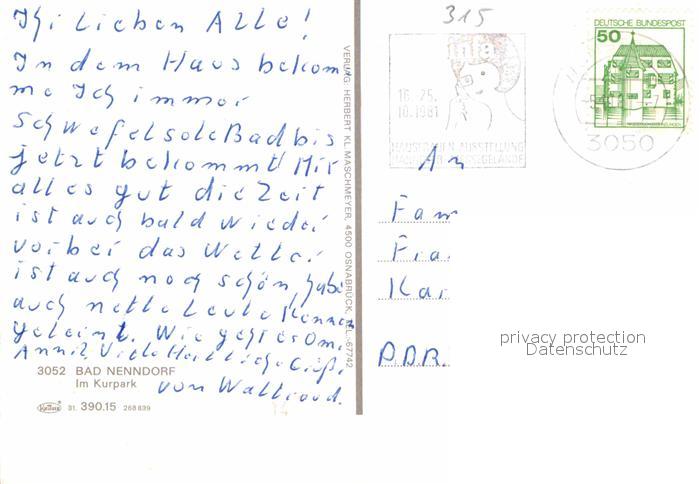 Ihr Lieben Alle!
In dem Haus bekom
me Ich immer
Schwefelsole Bad bis
jetzt bekommt Mir
alles gut die Zeit
ist auch bald wieder
vorbei das Wetter
ist auch noch schön, habe
auch nette Leute kennen
gelernt. Wie geht es Om.
Viele Herzliche Grüße
von Waltraud.
3052 BAD NENNDORF
Im Kurpark
31. 390.15 268 839
VERLAG HERBERT KL. MASCHMEYER, 4500 OSNABRÜCK, TEL. 67742
315
16.-25.
10.1981
HAUSFRAUEN-AUSSTELLUNG
DEUTSCHE BUNDESPOST
50
3050
An
Fam
Fra.
Kar
D.D.R.
privacy protection
Datenschutz